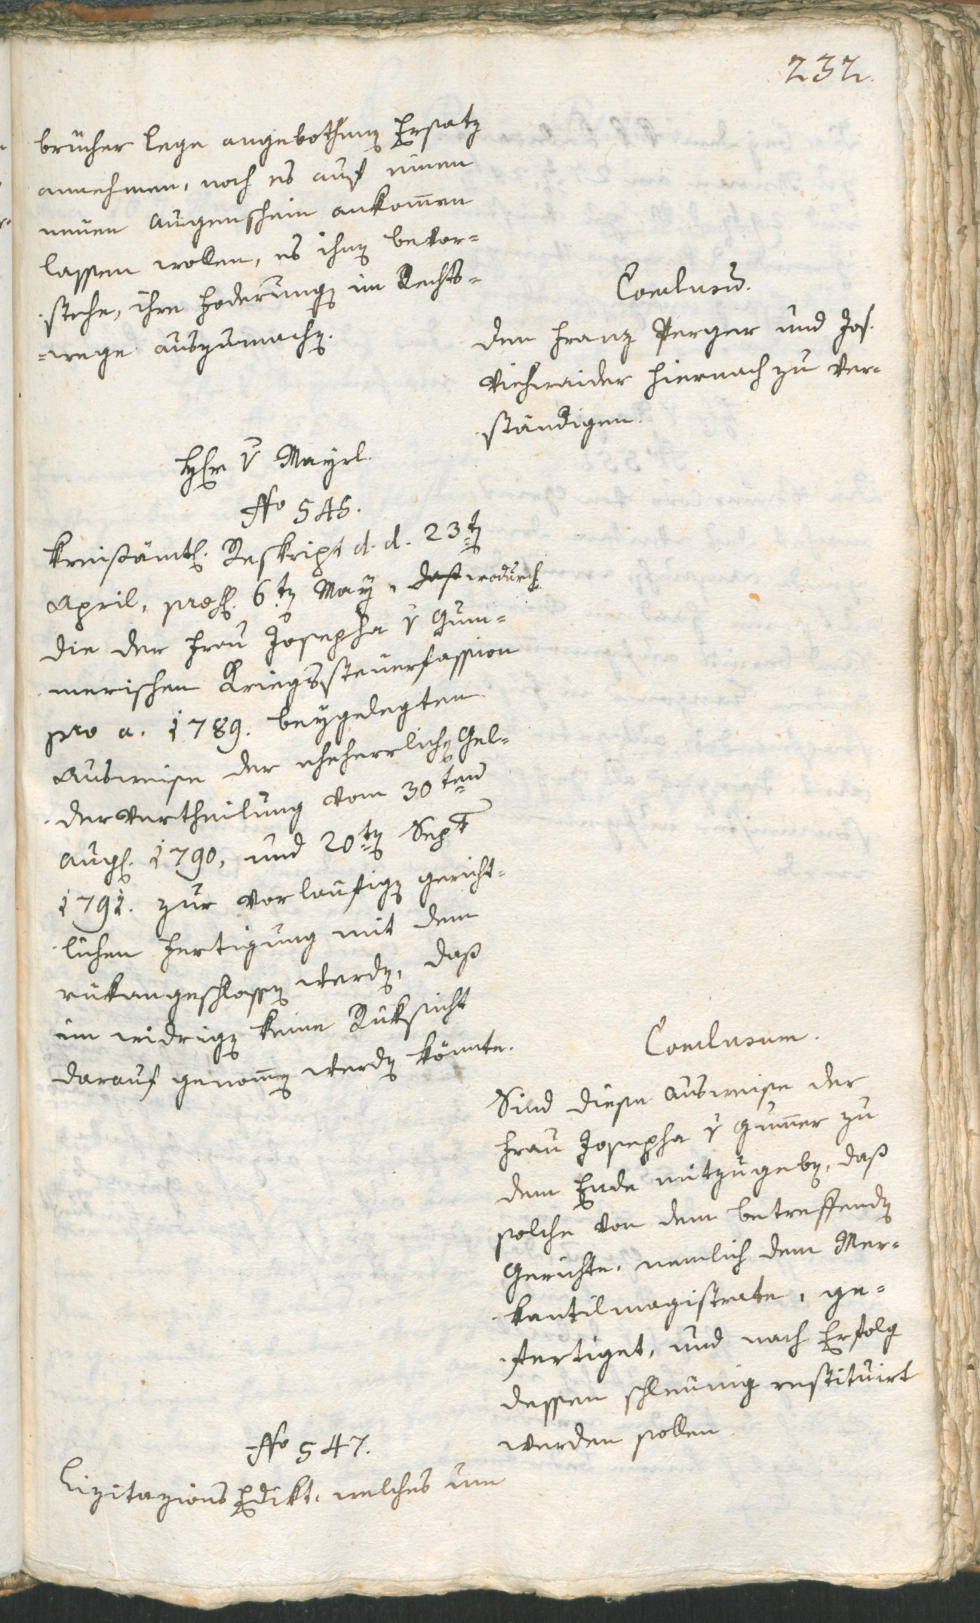 232.
brücher lege angebothenen Ersatz
annehmen, noch es auf einen
neuen Augenschein ankommen
lassen wollen, es ihnen bevor=
stehe, ihre Foderungen im Rechts=
=wege auszumachen.
Conclusum.
Dem Franz Perger und Jos.
Viehweider hiernach zu ver=
ständigen.
Herr v Mayrl.
No 546.
Kreisämtl. Reskript d. d. 23ten
April, pres. 6ten May, wodurch
die der Frau Josepha v Gum=
merischen Kriegssteuerfassion
pro a. 1789. beygelegten
Ausweise der eheherrlichen Gel=
dervertheilung vom 30ten
Aug. 1790, und 20ten Sept
1791. zur vorläufigen gericht=
lichen Fertigung mit dem
rükangeschlossen werden, daß
im widrigen keine Rüksicht
darauf genommen werden könnte.
Conclusum.
Sind diese Ausweise der
Frau Josepha v Gummer zu
dem Ende mitzugeben, daß
solche von dem betreffenden
Gerichte, nemlich dem Mer=
kantilmagistrate, ge=
fertiget, und nach Erfolg
dessen schleunig restituirt
werden sollen.
No 547.
Lizitazions Edikt, welches um